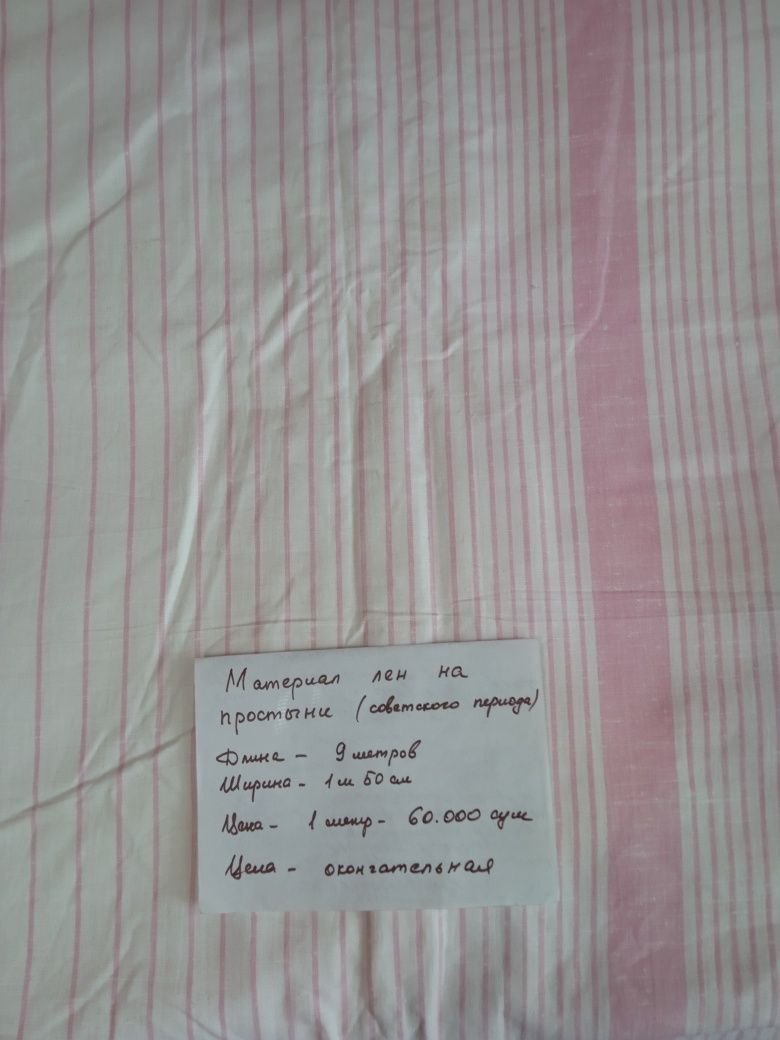 Материал лен на
простыни (советского периода)
Длина - 9 метров
Ширина - 1 м 50 см
Цена - 1 метр - 60.000 сум
Цена - окончательная